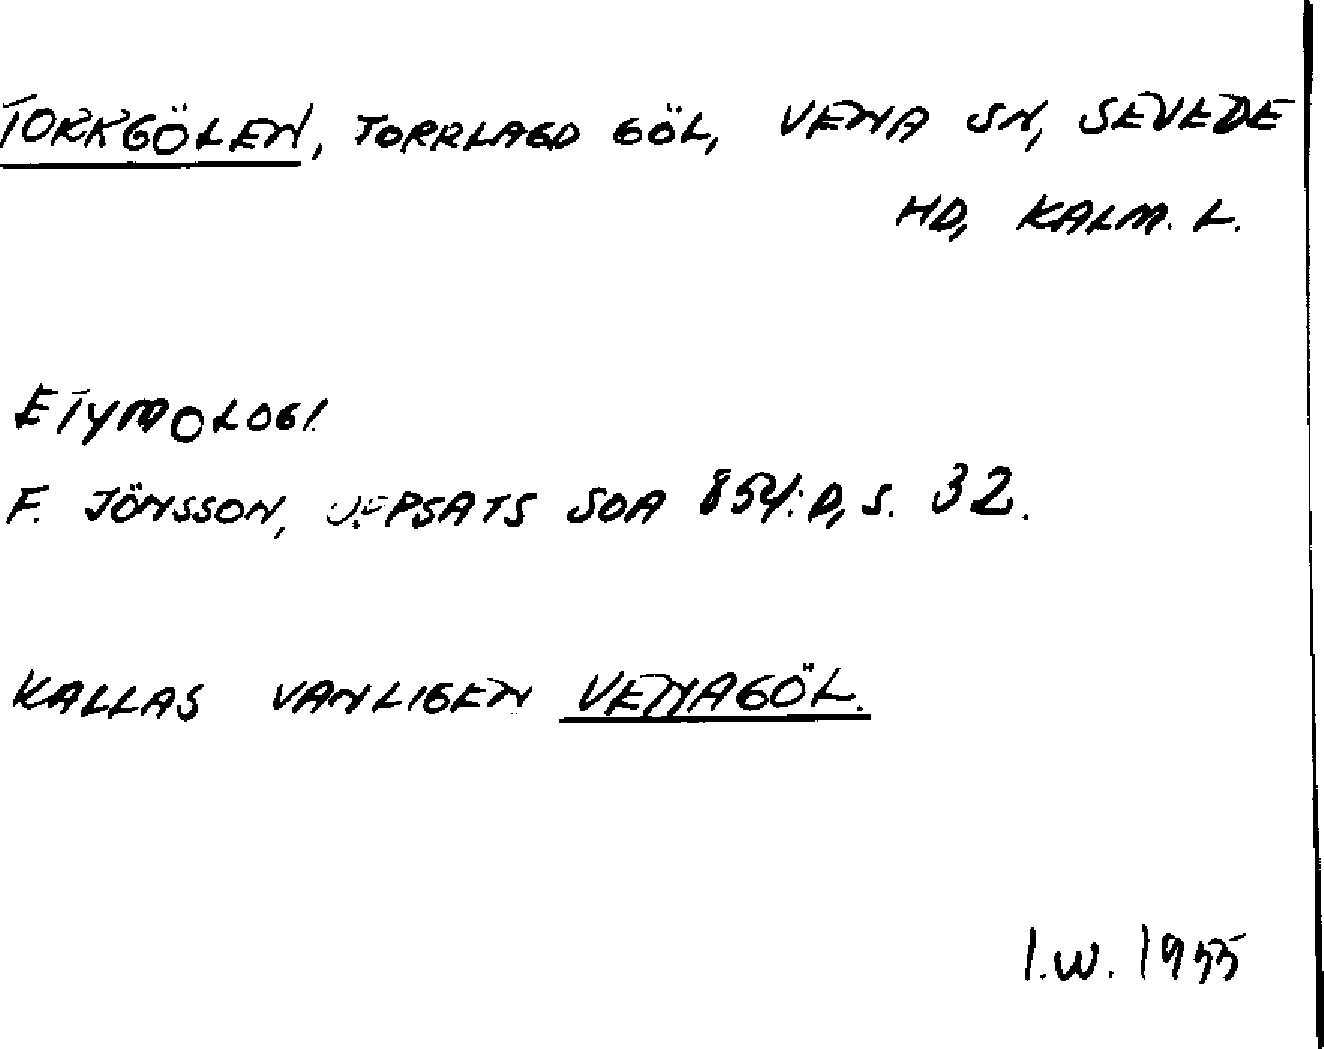 TORKGÖLEN, TORRLAGD GÖL, VENA SN, SEVEDE
HD, KALM. L.
ETYMOLOGI.
F. JÖNSSON, UPPSATS SOA 854:D, S. 32.
KALLAS VANLIGEN VENAGÖL.
I.W. 1955